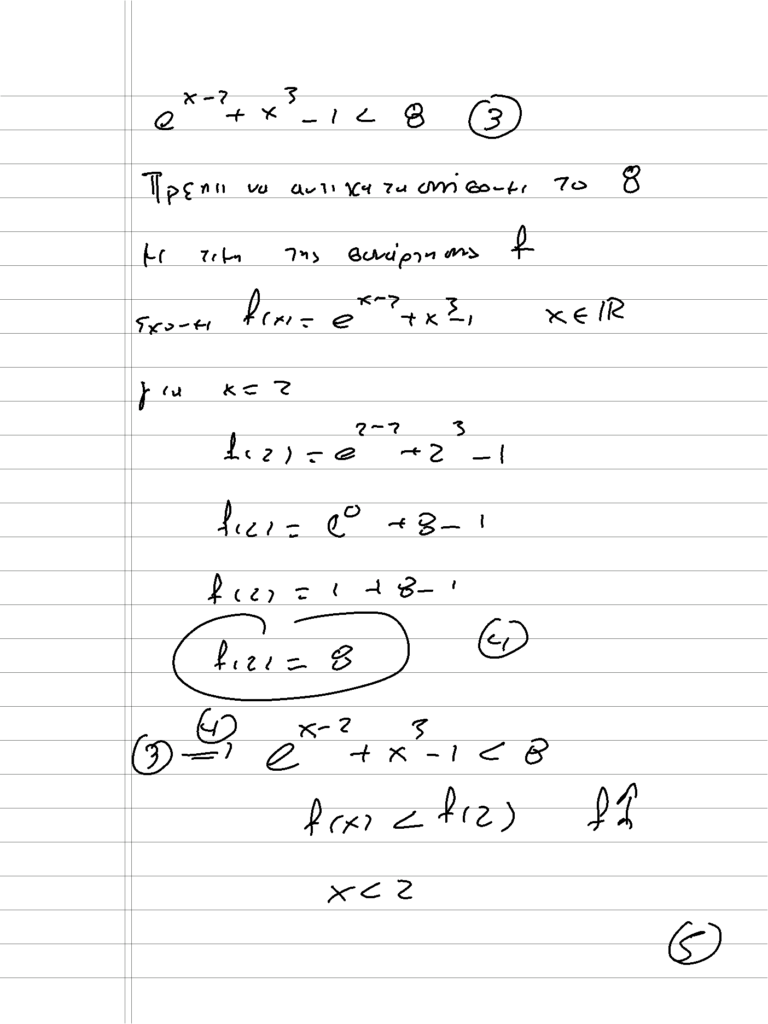 e^{x-2} + x^3 - 1 < 8 (3)
Πρέπει να αντικαταστήσουμε το 8
με τιμή της συνάρτησης f
έχουμε f(x) = e^{x-2} + x^3 - 1, x ∈ ℝ
για x = 2
f(2) = e^{2-2} + 2^3 - 1
f(2) = e^0 + 8 - 1
f(2) = 1 + 8 - 1
f(2) = 8 (4)
(3) =(4)⇒ e^{x-2} + x^3 - 1 < 8
f(x) < f(2) f↑
x < 2
(5)